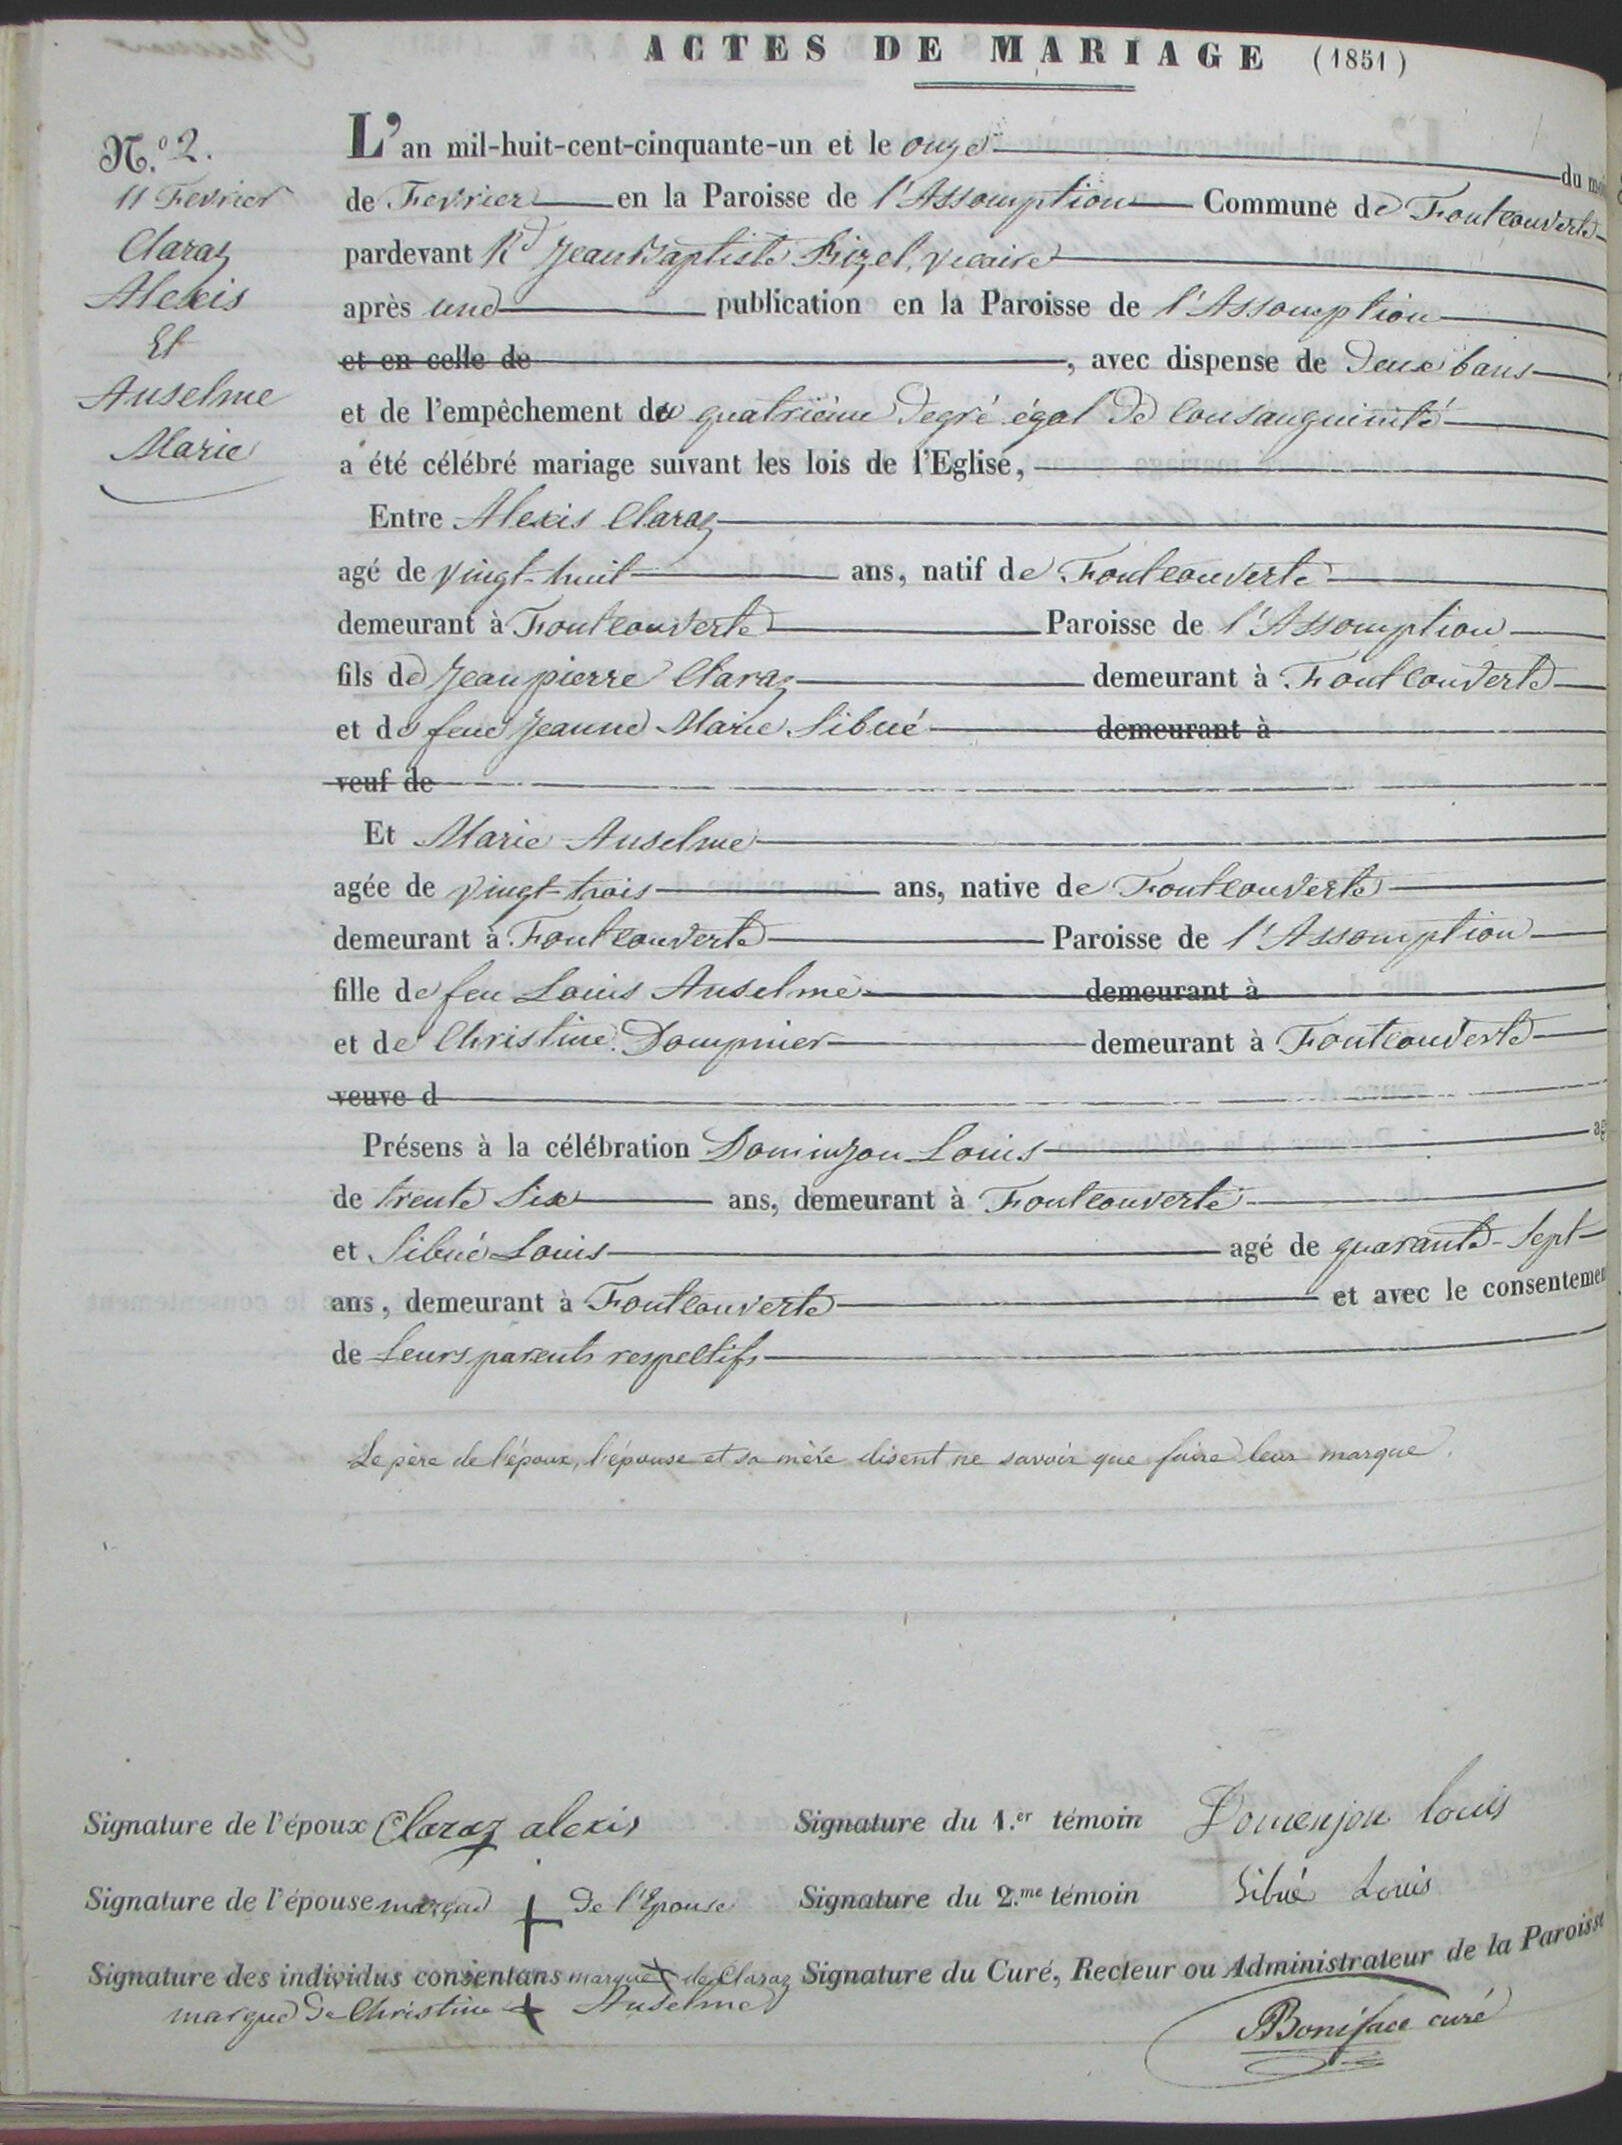 ACTES DE MARIAGE (1851)
N.º 2.
11 Fevrier
Claraz
Alexis
Et
Anselme
Marie
L'an mil-huit-cent-cinquante-un et le onze du moi
de Fevrier en la Paroisse de l'Assomption Commune de Fontcouverte
pardevant Rd Jean Baptiste Rizel, vicaire
après une publication en la Paroisse de l'Assomption
et en celle de , avec dispense de deux bans
et de l'empêchement du quatrième degré égal de consanguinité
a été célébré mariage suivant les lois de l'Eglise,
Entre Alexis Claraz
agé de vingt-huit ans, natif de Fontcouverte
demeurant à Fontcouverte Paroisse de l'Assomption
fils de Jean pierre Claraz demeurant à Fontcouverte
et de feue Jeanne Marie Sibué demeurant à
veuf de
Et Marie Anselme
agée de vingt-trois ans, native de Fontcouverte
demeurant à Fontcouverte Paroisse de l'Assomption
fille de feu Louis Anselme demeurant à
et de Christine Dompnier demeurant à Fontcouverte
veuve d
Présens à la célébration Dominjon Louis ag
de trente six ans, demeurant à Fontcouverte
et Sibué Louis agé de quarante-sept
ans, demeurant à Fontcouverte et avec le consentemen
de leurs parents respectifs
Le père de l'époux, l'épouse et sa mère disent ne savoir que faire leur marque.
Signature de l'époux Claraz alexis Signature du 1.er témoin Domenjon louis
Signature de l'épouse marque + de l'Epouse Signature du 2.me témoin Sibué Louis
Signature des individus consentans marque + de Claraz Signature du Curé, Recteur ou Administrateur de la Paroisse
marque de Christine + Anselme
Boniface curé